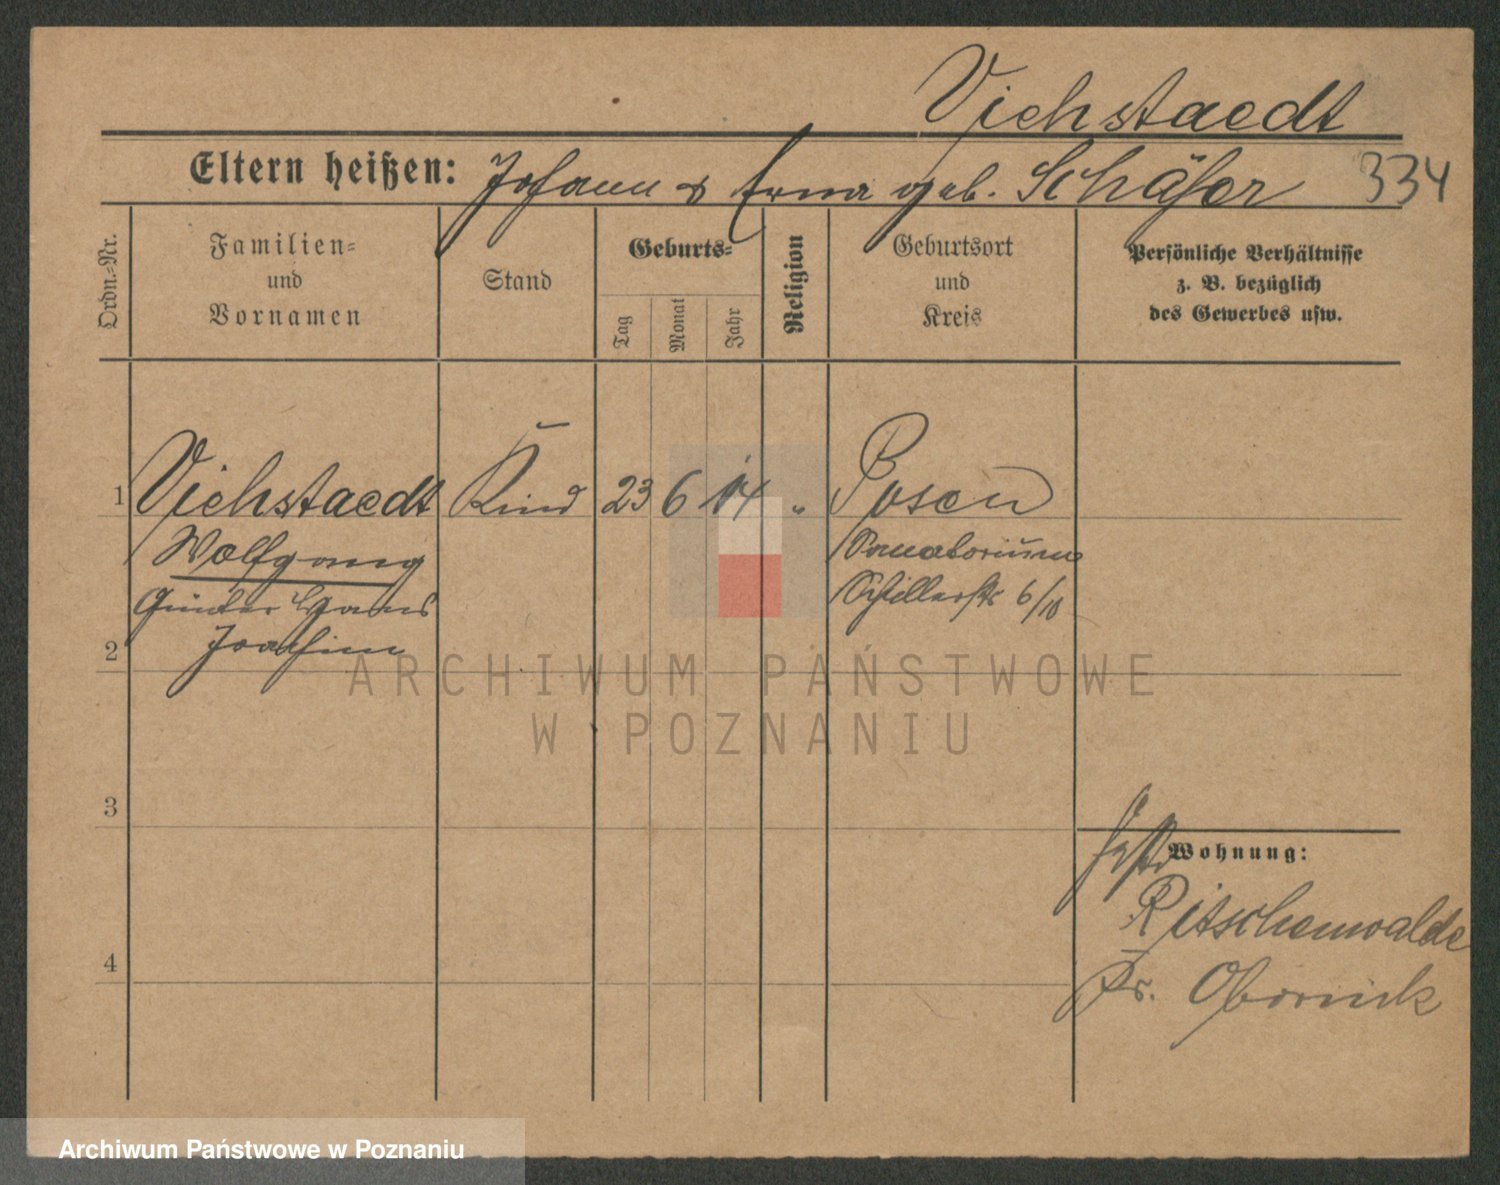 Viehstaedt
Eltern heißen: Johann & Erna geb. Schäfer 334
Ordn.-Nr.
Familien-
und
Vornamen
Stand
Geburts-
Tag
Monat
Jahr
Religion
Geburtsort
und
Kreis
Persönliche Verhältnisse
z. B. bezüglich
des Gewerbes usw.
1 Viehstaedt Kind 23 6 14 " Posen
Wolfgang
Günter Hans
Joachim
Sanatorium
Schillerstr 6/10
2
3
4
Wohnung:
Ritschenwalde
Kr. Obornik
ARCHIWUM PAŃSTWOWE
W POZNANIU
Archiwum Państwowe w Poznaniu